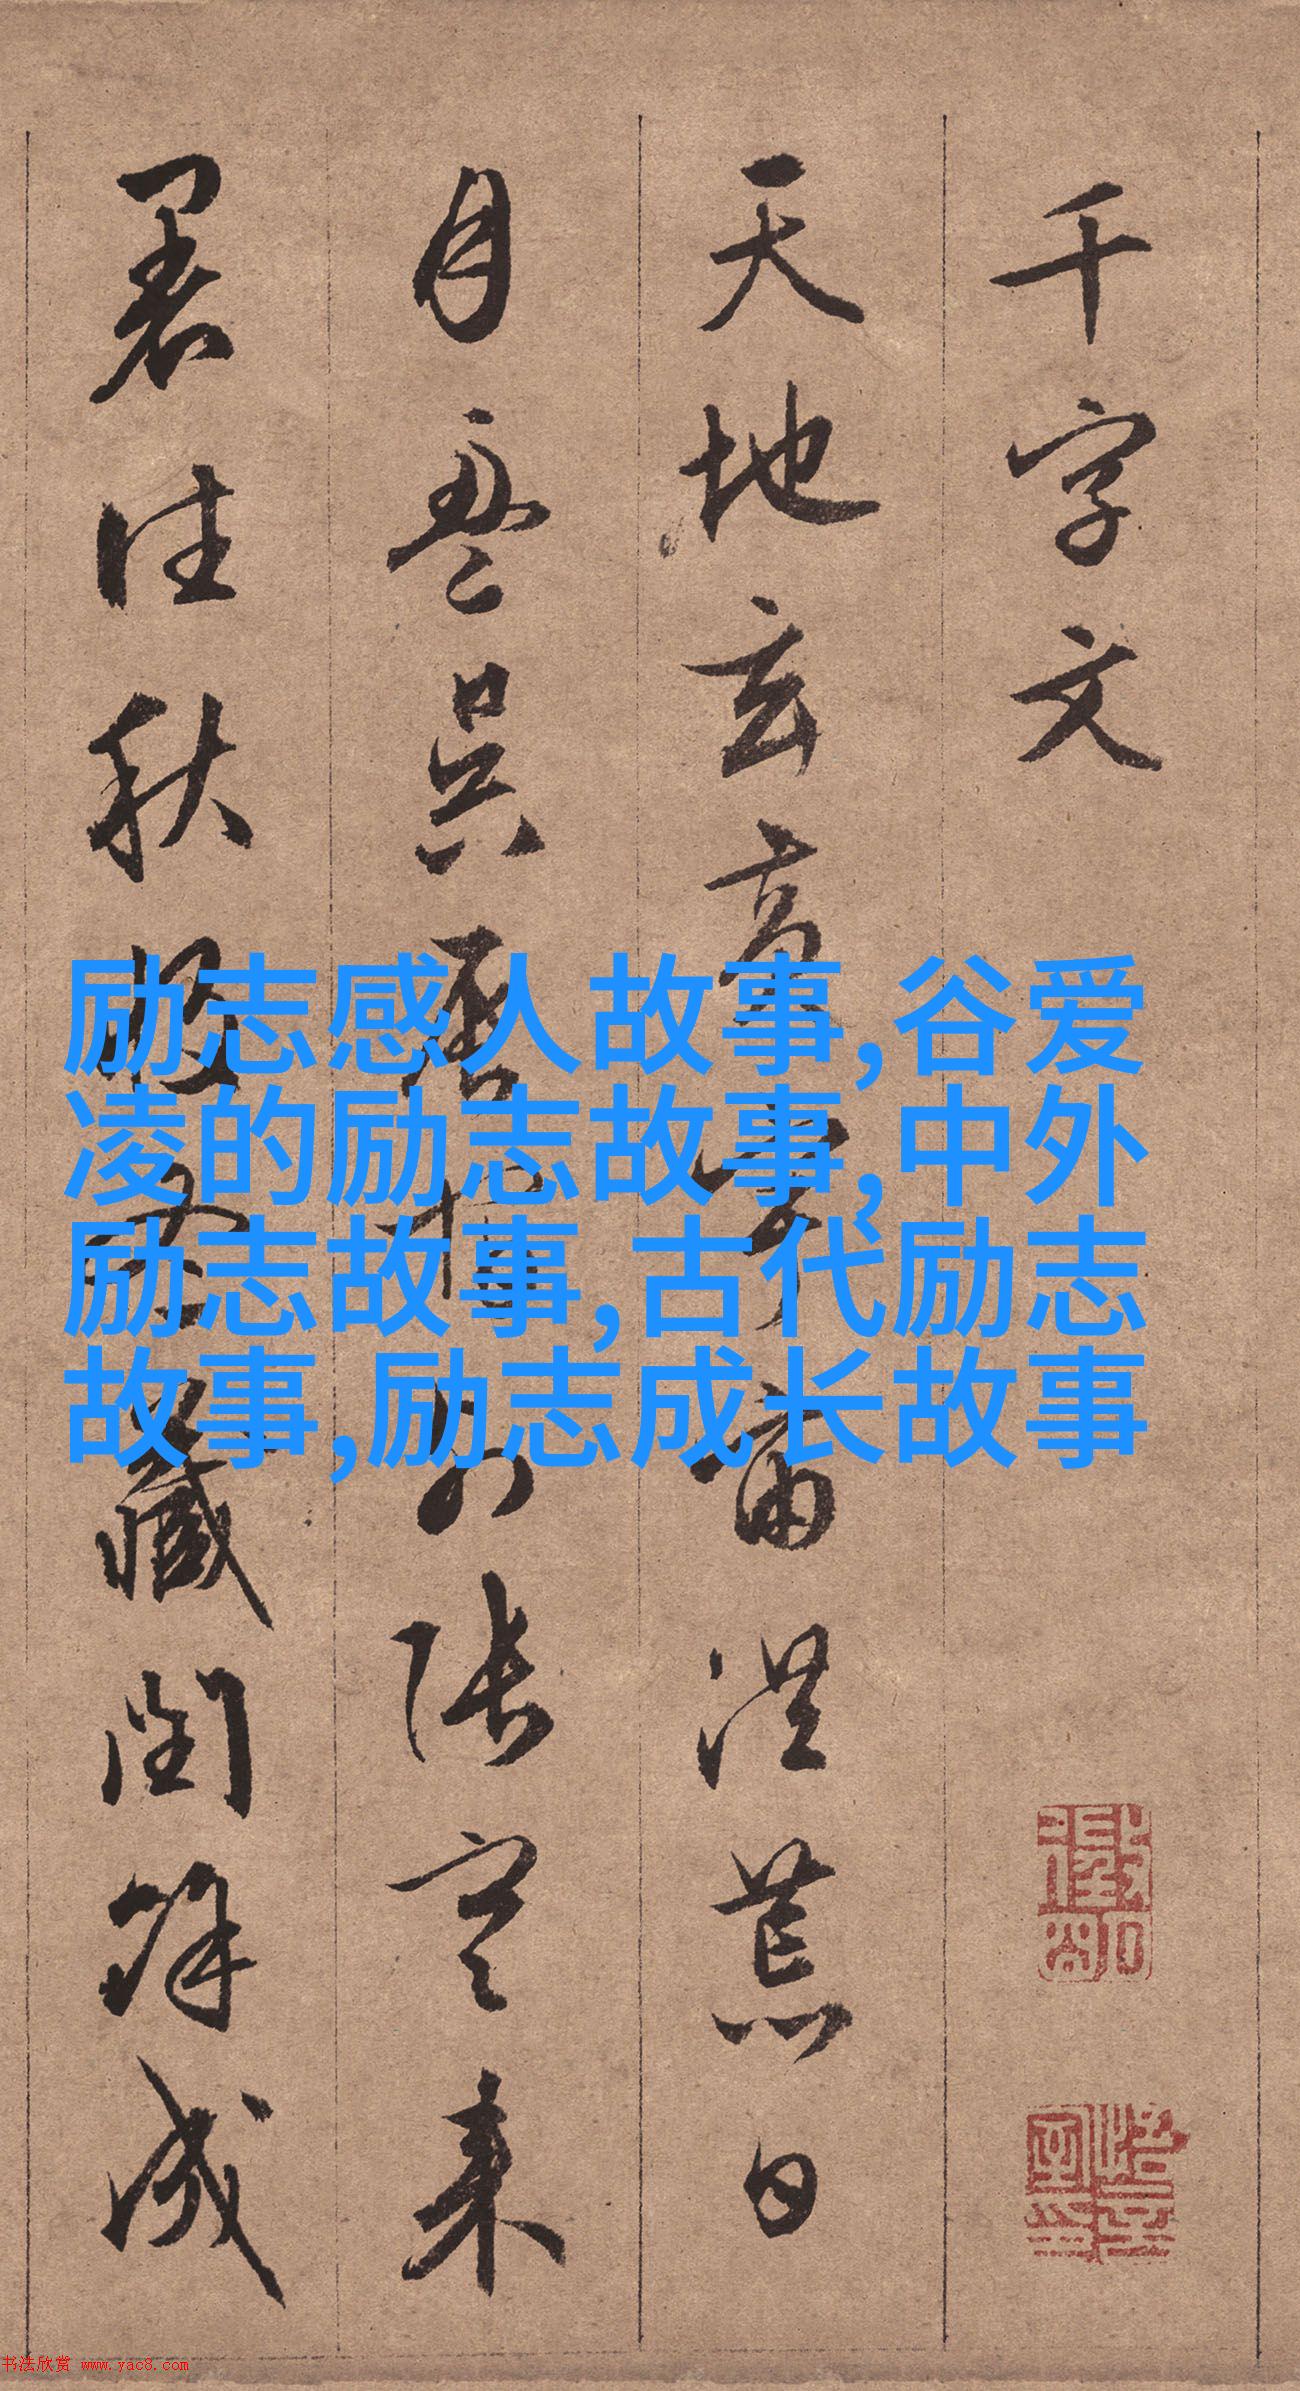 千字文
天地玄黄宇宙洪荒日
月盈昃辰宿列張寒来
暑往秋收冬藏閏餘成
励志感人故事,谷爱
凌的励志故事,中外
励志故事,古代励志
故事,励志成长故事
书法欣赏 www.yac8.com